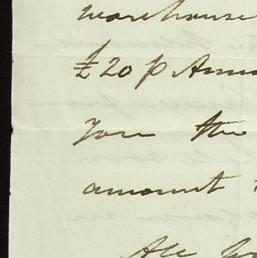 warehouse
£20 p Annu
you the
amount
All